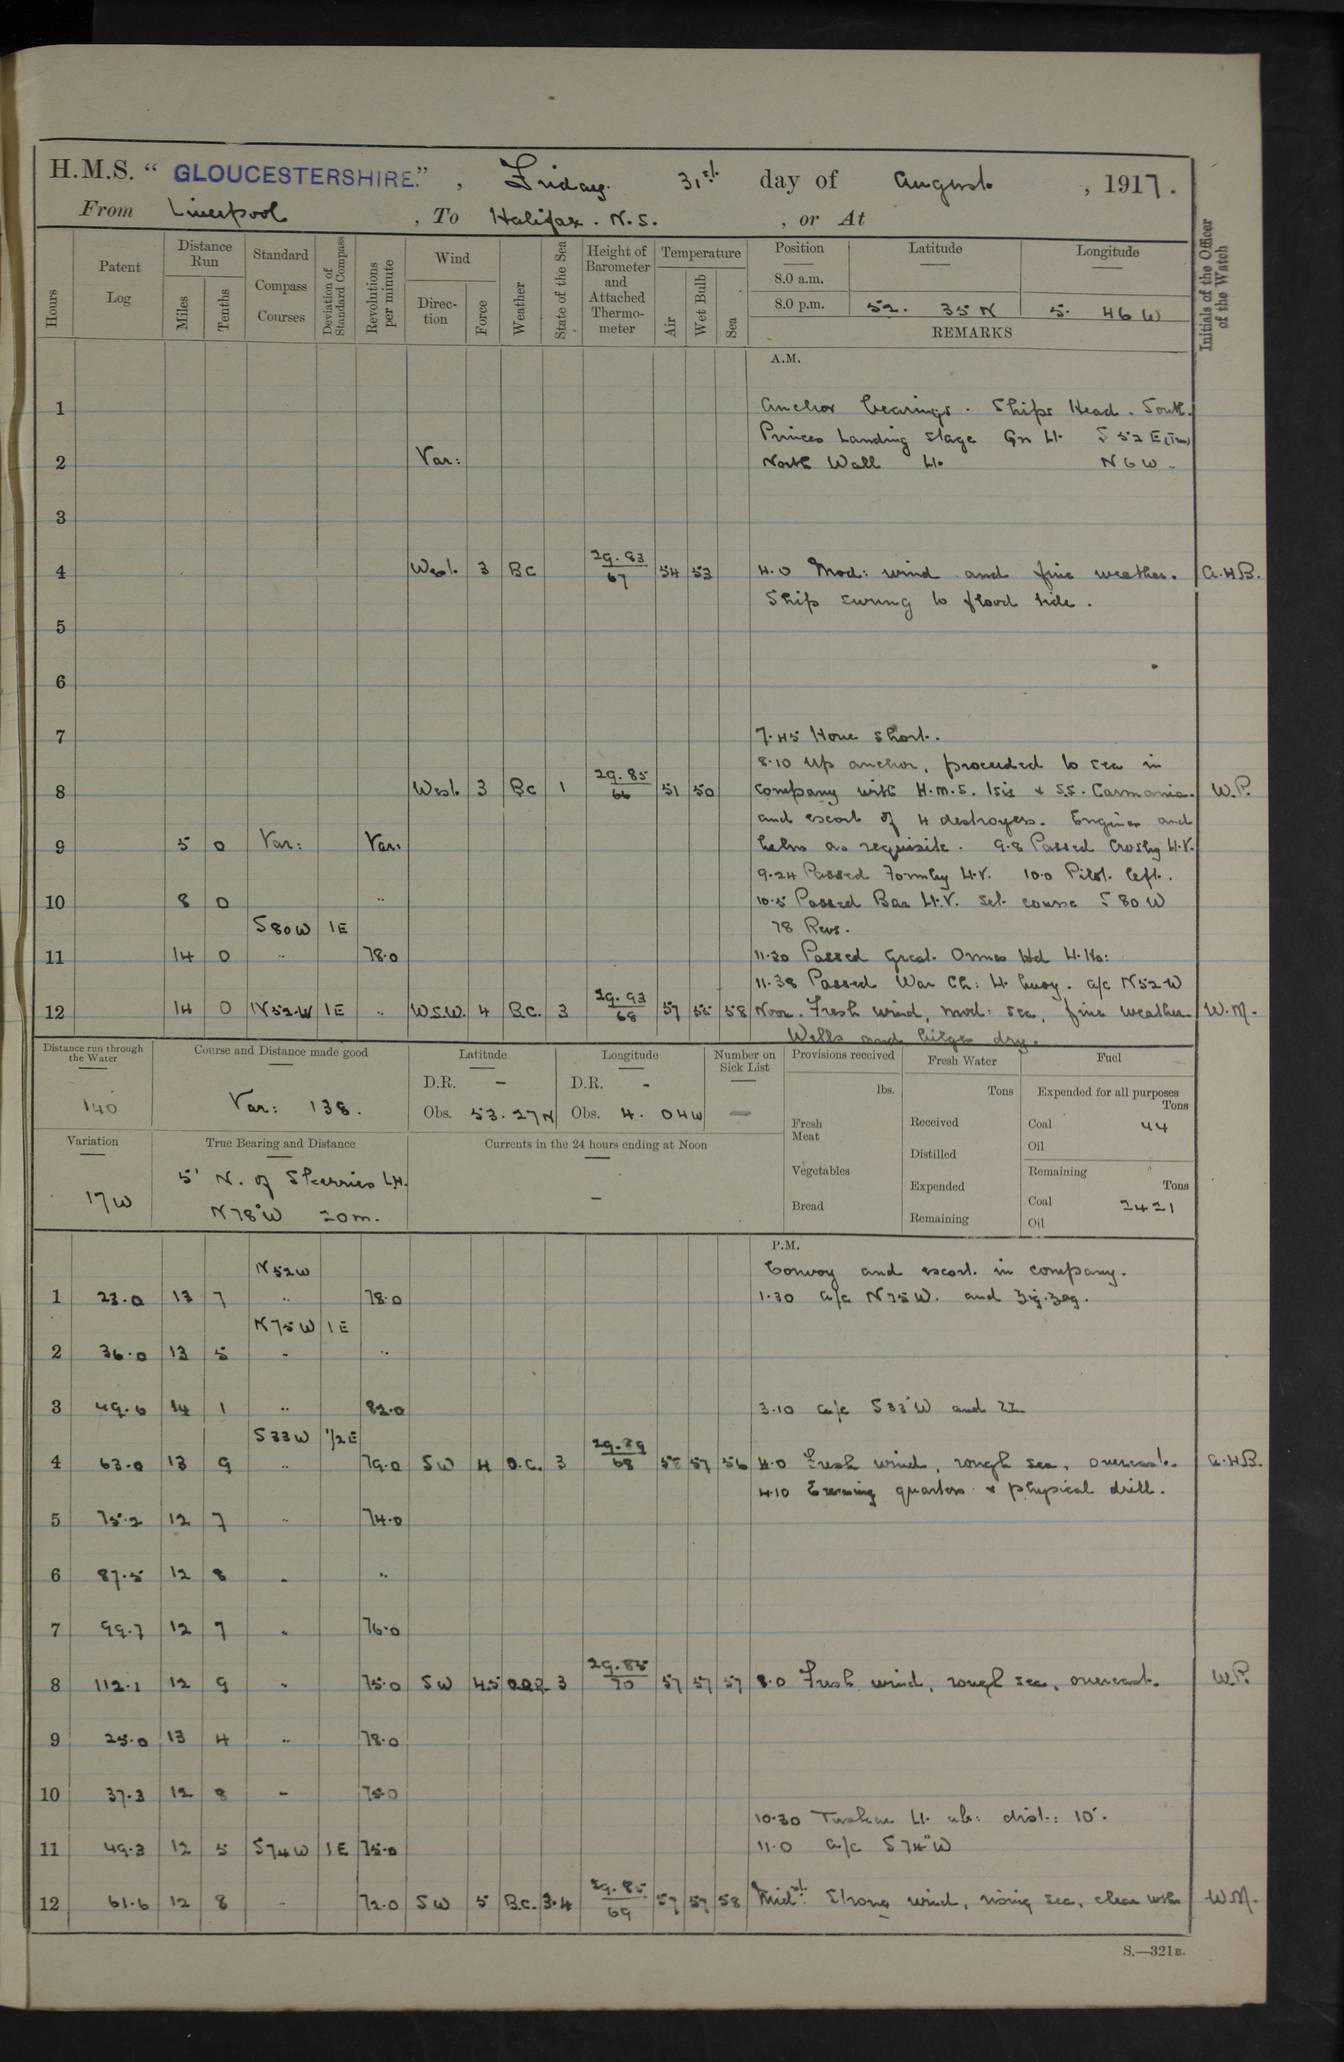 H.M.S. “ GLOUCESTERSHIRE.” , Friday. 31st. day of August , 1917.
From Liverpool , To Halifax. N.S. , or At
Hours
Patent Log
Distance Run
Miles
Tenths
Standard Compass Courses
Deviation of Standard Compass
Revolutions per minute
Wind
Direction
Force
Weather
State of the Sea
Height of Barometer and Attached Thermometer
Temperature
Air
Wet Bulb
Sea
Position Latitude Longitude
8.0 a.m.
8.0 p.m. 52. 35 N 5. 46 W
REMARKS
Initials of the Officer of the Watch
A.M.
1 Anchor bearings. Ships Head. South.
Princes Landing Stage Gn Lt. S 52 E (True)
2 Var: North Wall Lt. N 6 W.
3
4 West. 3 BC 29.83 67 54 53 4.0 Mod: wind and fine weather. A.H.B.
Ship swung to flood tide.
5
6
7 7.45 Hove short.
8.10 Up anchor, proceeded to sea in
8 West. 3 BC 1 29.85 66 51 50 company with H.M.S. Isis & S.S. Carmania. W.P.
and escort of 4 destroyers. Engines and
9 5 0 Var: Var: helm as requisite. 9.8 Passed Crosby L.V.
9.24 Passed Formby L.V. 10.0 Pilot left.
10 8 0 " 10.5 Passed Bar L.V. Set course S 80 W
S80W 1E 78 Revs.
11 14 0 " 78.0 11.20 Passed Great Ormes Hd L.Ho:
11.38 Passed War Ch: Lt buoy. a/c N52W
12 14 0 N52W 1E " W.S.W. 4 B.C. 3 29.93 68 57 55 58 Noon. Fresh wind, mod: sea, fine weather W.M.
Wells and bilges dry.
Distance run through the Water
140
Course and Distance made good
Var: 138.
Latitude
D.R. -
Obs. 53.27N
Longitude
D.R. -
Obs. 4. 04W
Number on Sick List
—
Provisions received
lbs.
Fresh Meat
Vegetables
Bread
Fresh Water
Tons
Received
Distilled
Expended
Remaining
Fuel
Expended for all purposes
Tons
Coal 44
Oil
Remaining
Tons
Coal 2421
Oil
Variation
17W
True Bearing and Distance
5' N. of Skerries L.H.
N78°W 20m.
Currents in the 24 hours ending at Noon
-
P.M.
N52W Convoy and escort in company.
1 23.0 13 7 " 78.0 1.30 a/c N75W. and Zig-zag.
N75W 1E
2 36.0 13 5 " "
3 49.6 14 1 " 82.0 3.10 a/c S33°W and ZZ
S33W 1/2E
4 63.0 13 9 " 79.0 SW 4 O.C. 3 29.89 68 58 57 56 4.0 Fresh wind, rough sea, overcast. A.H.B.
4.10 Evening quarters & physical drill.
5 75.2 12 7 " 74.0
6 87.5 12 8 " "
7 99.7 12 7 " 76.0
8 112.1 12 9 " 75.0 SW 4.5 3 29.85 70 57 57 57 8.0 Fresh wind, rough sea, overcast. W.P.
9 25.0 13 4 " 78.0
10 37.3 12 8 " 75.0
10.30 Tuskar Lt. ab: dist: 10'.
11 49.3 12 5 S74W 1E 75.0 11.0 a/c S 74°W
12 61.6 12 8 " 72.0 SW 5 B.C. 3.4 29.85 69 57 57 58 Midt. Strong wind, rising sea, clear wth W.M.
S.—321B.